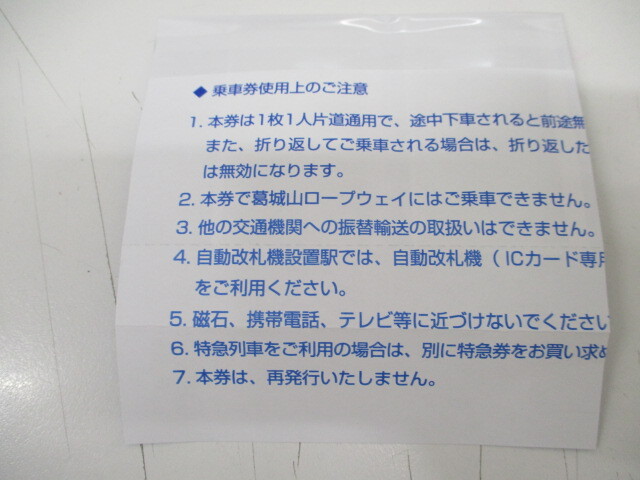 ◆ 乗車券使用上のご注意
1. 本券は1枚1人片道通用で、途中下車されると前途無
また、折り返してご乗車される場合は、折り返した
は無効になります。
2. 本券で葛城山ロープウェイにはご乗車できません。
3. 他の交通機関への振替輸送の取扱いはできません。
4. 自動改札機設置駅では、自動改札機（ICカード専用
をご利用ください。
5. 磁石、携帯電話、テレビ等に近づけないでください
6. 特急列車をご利用の場合は、別に特急券をお買い求め
7. 本券は、再発行いたしません。